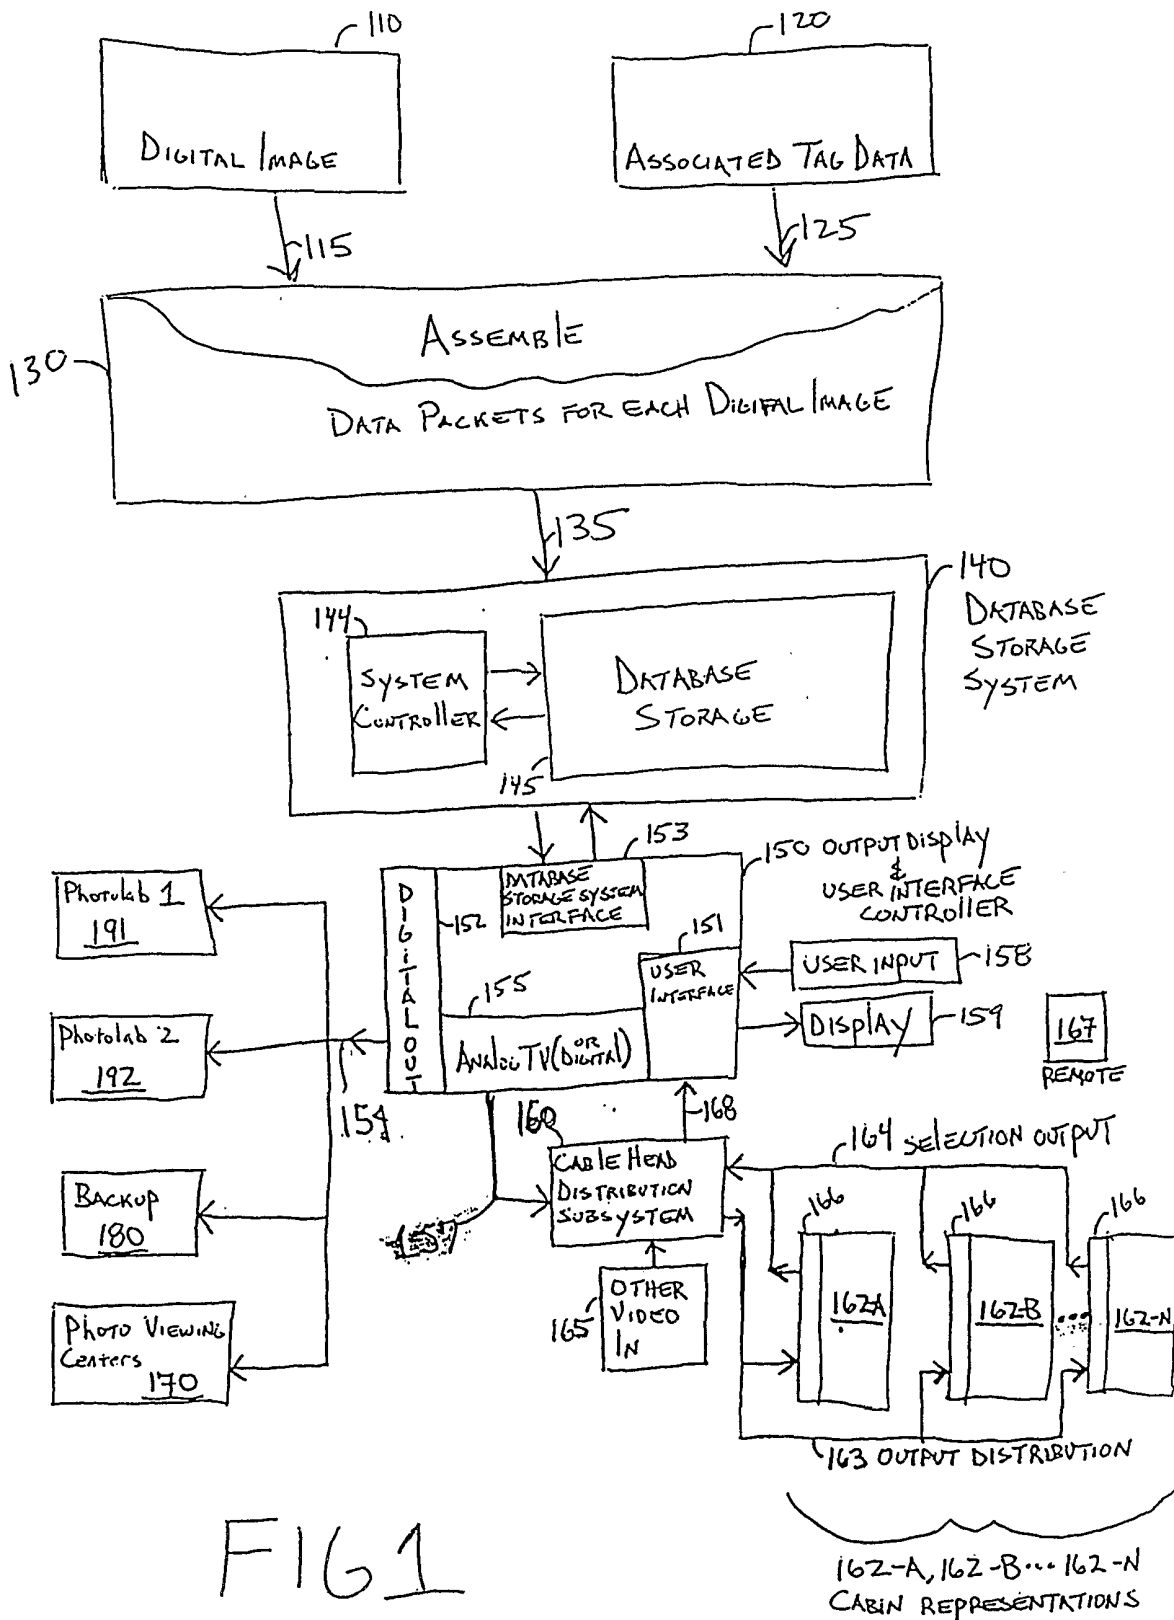 110
120
DIGITAL IMAGE
ASSOCIATED TAG DATA
115
125
130
ASSEMBLE
DATA PACKETS FOR EACH DIGITAL IMAGE
135
140
DATABASE
STORAGE
SYSTEM
144
SYSTEM
CONTROLLER
DATABASE
STORAGE
145
153
150 OUTPUT DISPLAY
&
USER INTERFACE
CONTROLLER
DIGITAL OUT
152
DATABASE
STORAGE SYSTEM
INTERFACE
151
USER
INTERFACE
155
ANALOG TV (OR DIGITAL)
USER INPUT
158
DISPLAY
159
167
REMOTE
Photolab 1
191
Photolab 2
192
154
BACKUP
180
PHOTO VIEWING
Centers
170
160
168
CABLE HEAD
DISTRIBUTION
SUBSYSTEM
164 SELECTION OUTPUT
166
166
166
162-A
162-B
...
162-N
165
OTHER
VIDEO
IN
163 OUTPUT DISTRIBUTION
FIG 1
162-A, 162-B... 162-N
CABIN REPRESENTATIONS